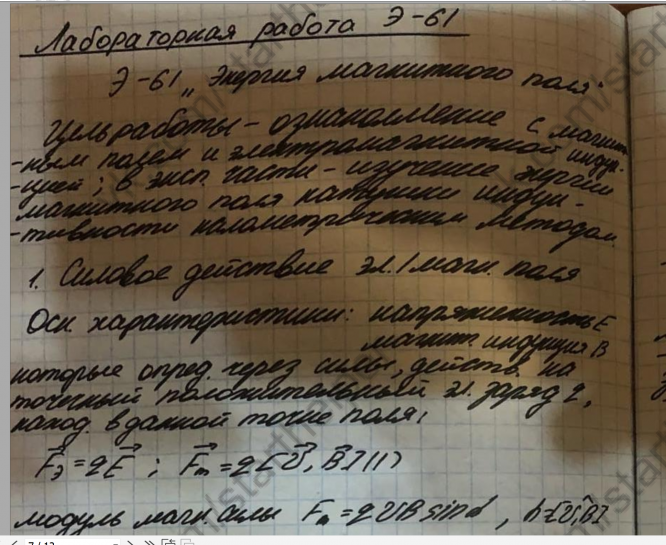 Лабораторная работа Э-61
Э-61 „Энергия магнитного поля"
Цель работы - ознакомление с магнит
-ным полем и электромагнитной индук-
-цией; в эксп. части - изучение энергии
магнитного поля катушки индук-
-тивности калометрическим методом
1. Силовое действие эл./магн. поля
Осн характеристики: напряженность E
магнит. индукция B
которые опред. через силы, действ. на
точечный положительный эл. заряд q,
наход. в данной точке поля:
F⃗э = qE⃗ ; F⃗m = q[U⃗, B⃗] (1)
модуль магн. силы Fm = qUB sin α ,
7 / 12